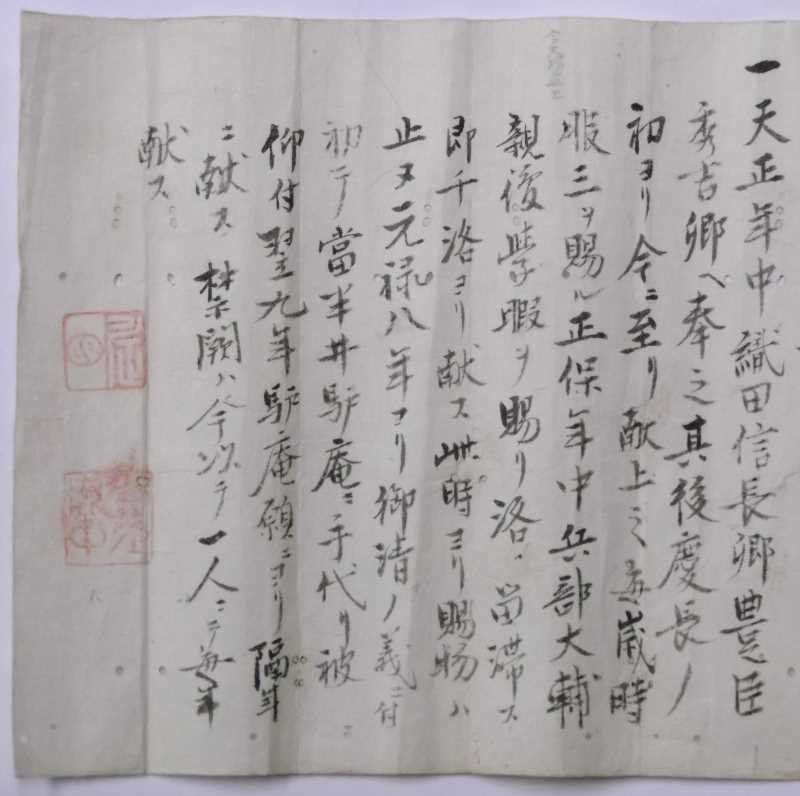 一天正年中織田信長卿豊臣
秀吉卿ヘ奉之其後慶長ノ
初ヨリ今ニ至リ献上之毎歳時
暇三ヲ賜ル正保年中兵部大輔
親後学暇ヲ賜リ洛ニ留滞ス
即千洛ヨリ献ス此時ヨリ賜物ハ
止又元禄八年ヨリ御清ノ義ニ付
初テ當半井驢庵ニ手代リ被
仰付翌九年驢庵願ニヨリ隔年
ニ献ス禁闕ハ今以テ一人ニテ毎年
献ス